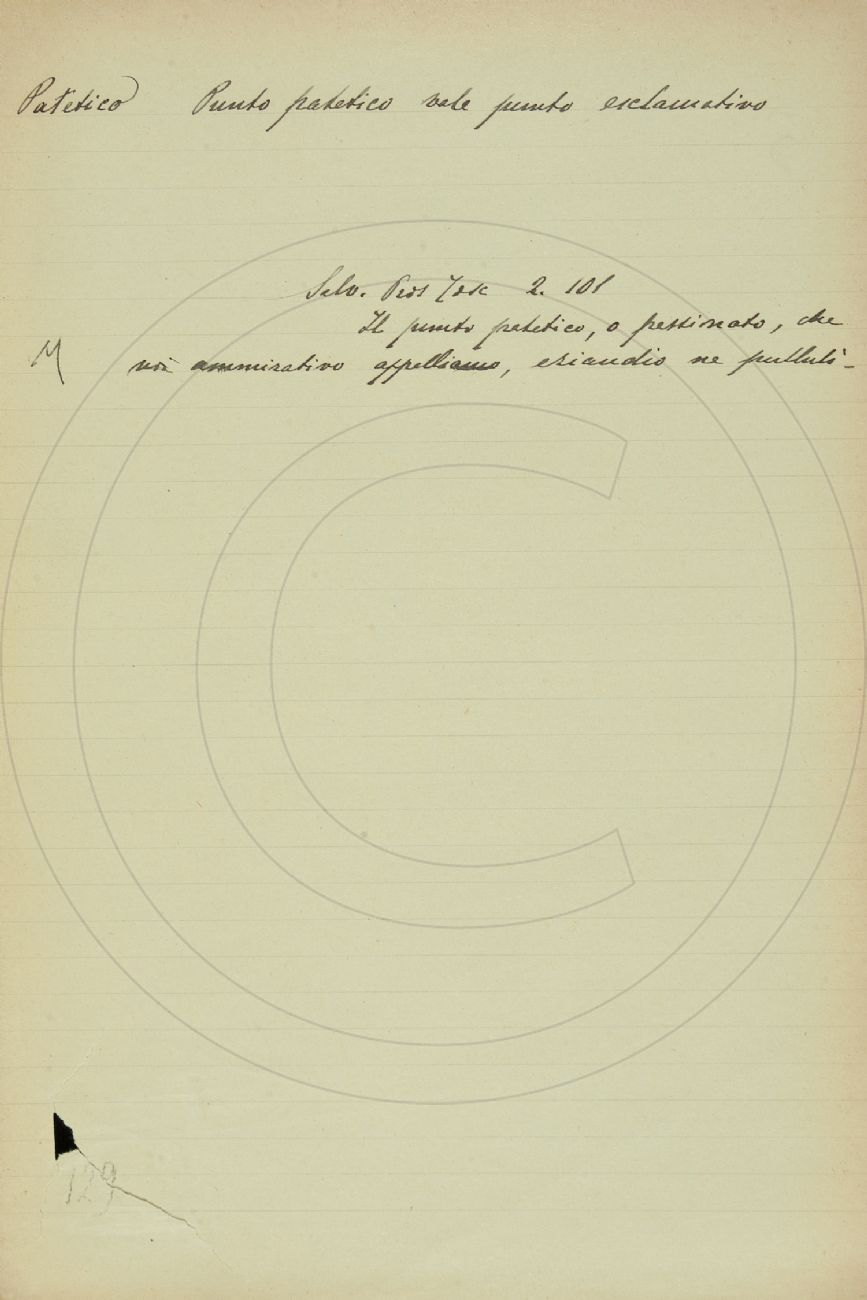 Patetico Punto patetico vale punto esclamativo
Salv. Pros Tosc 2. 101
Il punto patetico, o passionato, che
M noi ammirativo appelliamo, eziandio ne pulluli-
129